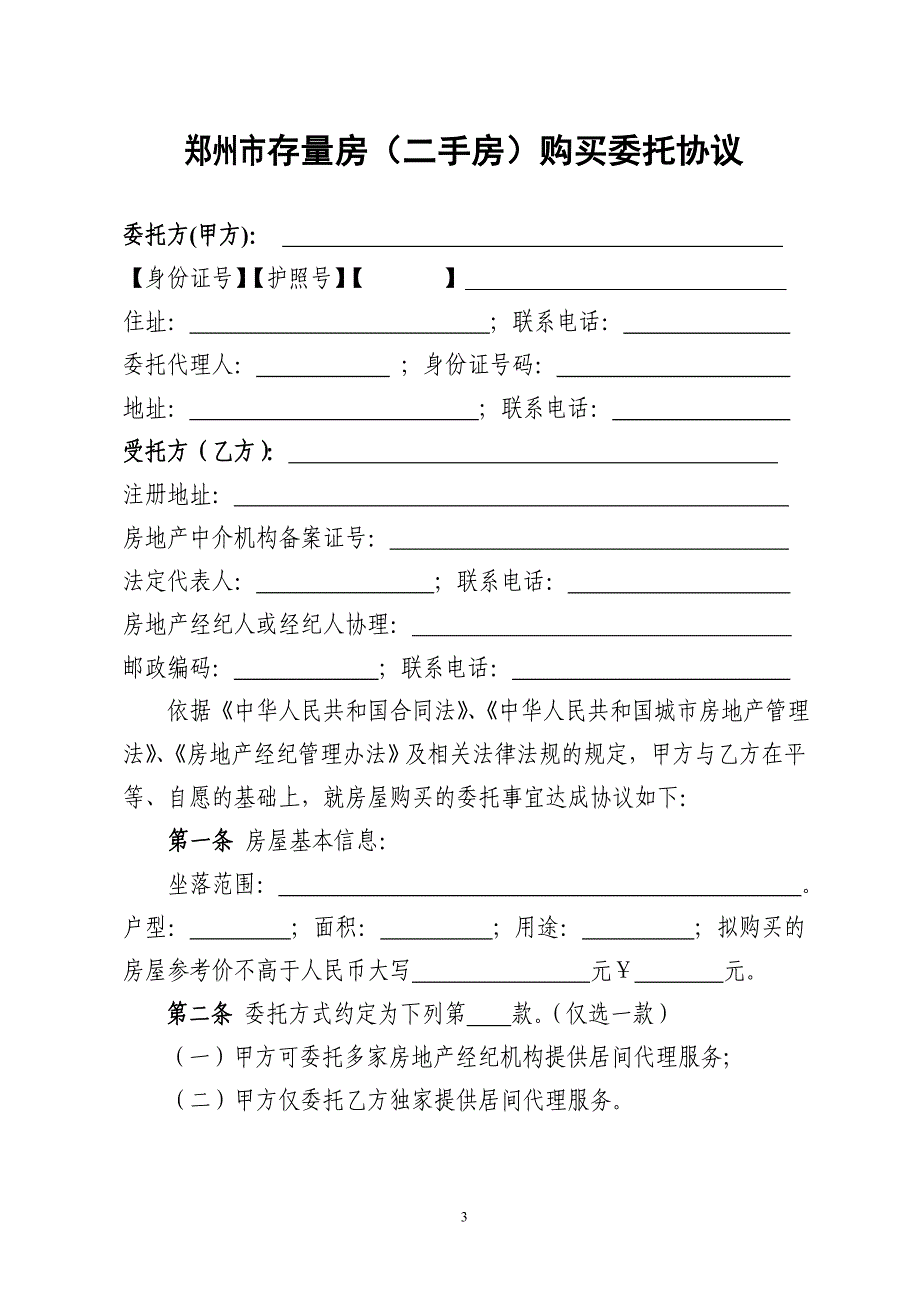 郑州市存量房（二手房）购买委托协议
委托方(甲方)：
【身份证号】【护照号】【 】
住址：；联系电话：
委托代理人：；身份证号码：
地址：；联系电话：
受托方（乙方）：
注册地址：
房地产中介机构备案证号：
法定代表人：；联系电话：
房地产经纪人或经纪人协理：
邮政编码：；联系电话：
依据《中华人民共和国合同法》、《中华人民共和国城市房地产管理
法》、《房地产经纪管理办法》及相关法律法规的规定，甲方与乙方在平
等、自愿的基础上，就房屋购买的委托事宜达成协议如下：
第一条 房屋基本信息：
坐落范围：。
户型：；面积：；用途：；拟购买的
房屋参考价不高于人民币大写元￥元。
第二条 委托方式约定为下列第款。（仅选一款）
（一）甲方可委托多家房地产经纪机构提供居间代理服务；
（二）甲方仅委托乙方独家提供居间代理服务。
3